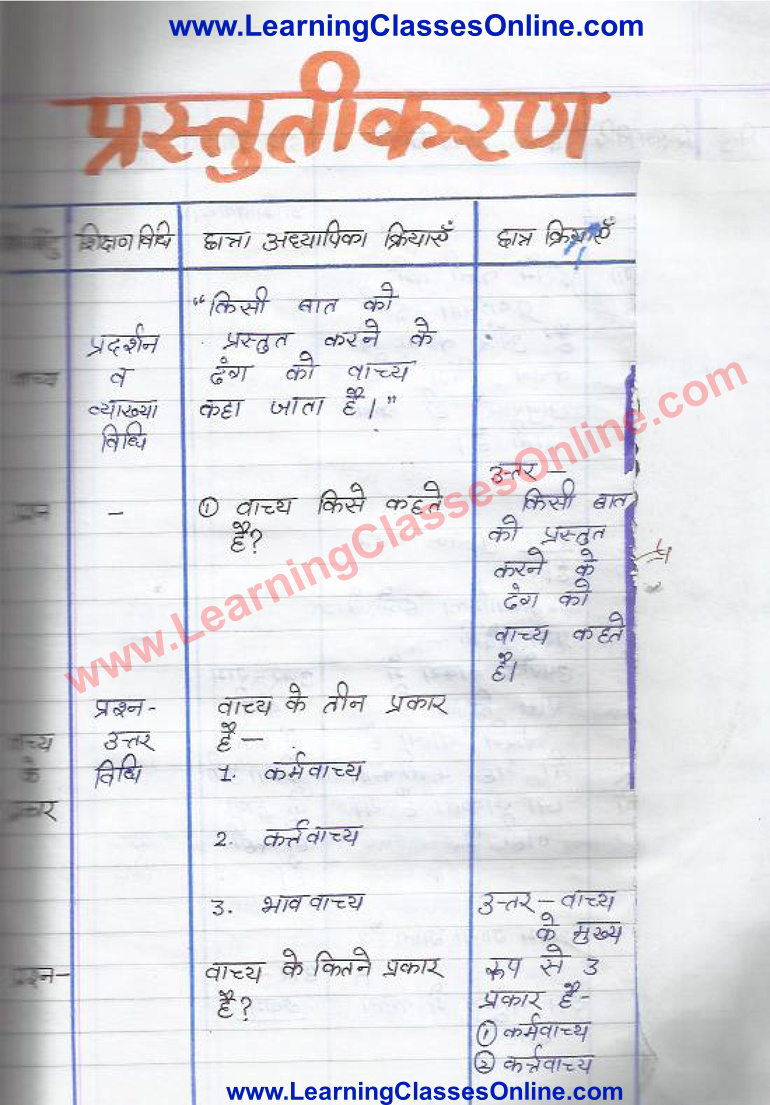 www.LearningClassesOnline.com
प्रस्तुतीकरण
शिक्षण विधि
छात्रा अध्यापिका क्रियाएँ
छात्र क्रियाएँ
वाच्य
प्रदर्शन
व
व्याख्या
विधि
"किसी बात को
प्रस्तुत करने के
ढंग को वाच्य
कहा जाता है।"
www.LearningClassesOnline.com
प्रश्न
-
① वाच्य किसे कहते
है?
उत्तर -
किसी बात
को प्रस्तुत
करने के
ढंग को
वाच्य कहते
है।
वाच्य
के
प्रकार
प्रश्न-
उत्तर
विधि
वाच्य के तीन प्रकार
है -
1. कर्मवाच्य
2. कर्तवाच्य
3. भाववाच्य
प्रश्न-
वाच्य के कितने प्रकार
है?
उत्तर - वाच्य
के मुख्य
रूप से 3
प्रकार है-
① कर्मवाच्य
② कर्त्तवाच्य
www.LearningClassesOnline.com